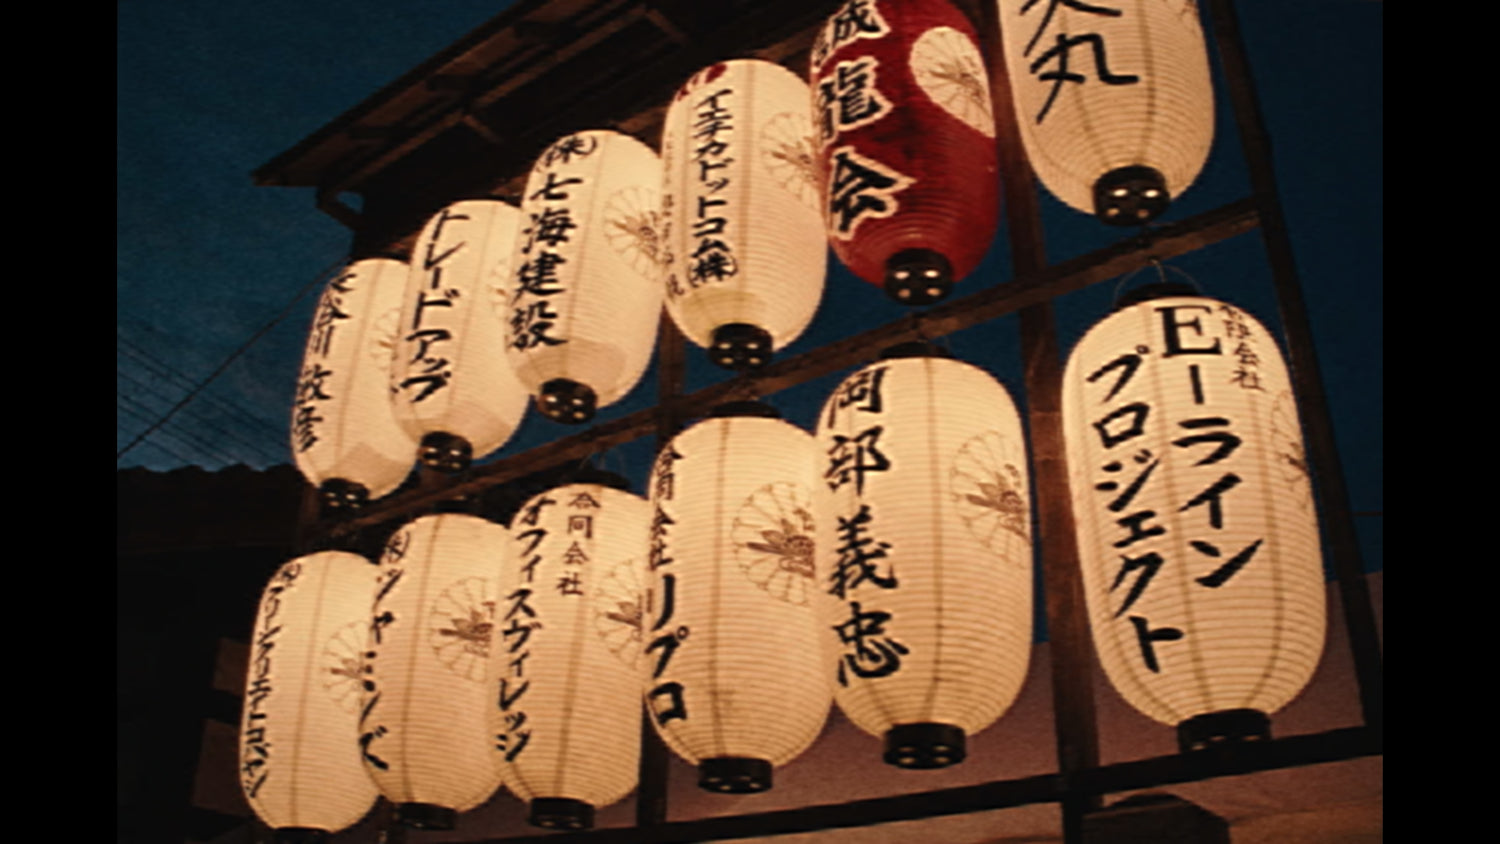 丸
成
龍会
イエチカドットコム㈱
(株)七海建設
トレードアップ
長谷川 敏彦
有限会社
Eーライン
プロジェクト
岡部義忠
合同会社リプロ
合同会社
オフィスヴィレッジ
(株)ジャーミンズ